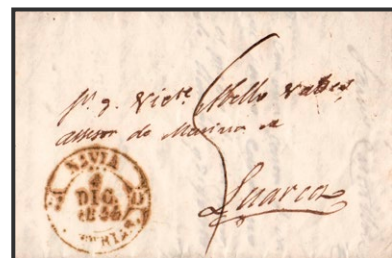 Sr. D. Victe. Abello Valdes
asesor de Marina de
Luarca
NAVIA
4
DIC.
ASTURIAS